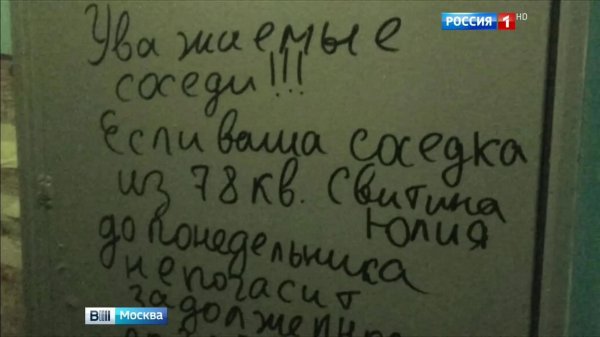 РОССИЯ 1 HD
Уважаемые
соседи!!!
Если ваша соседка
из 78 кв. Свитина
Юлия
до понедельника
не погасит
Москва